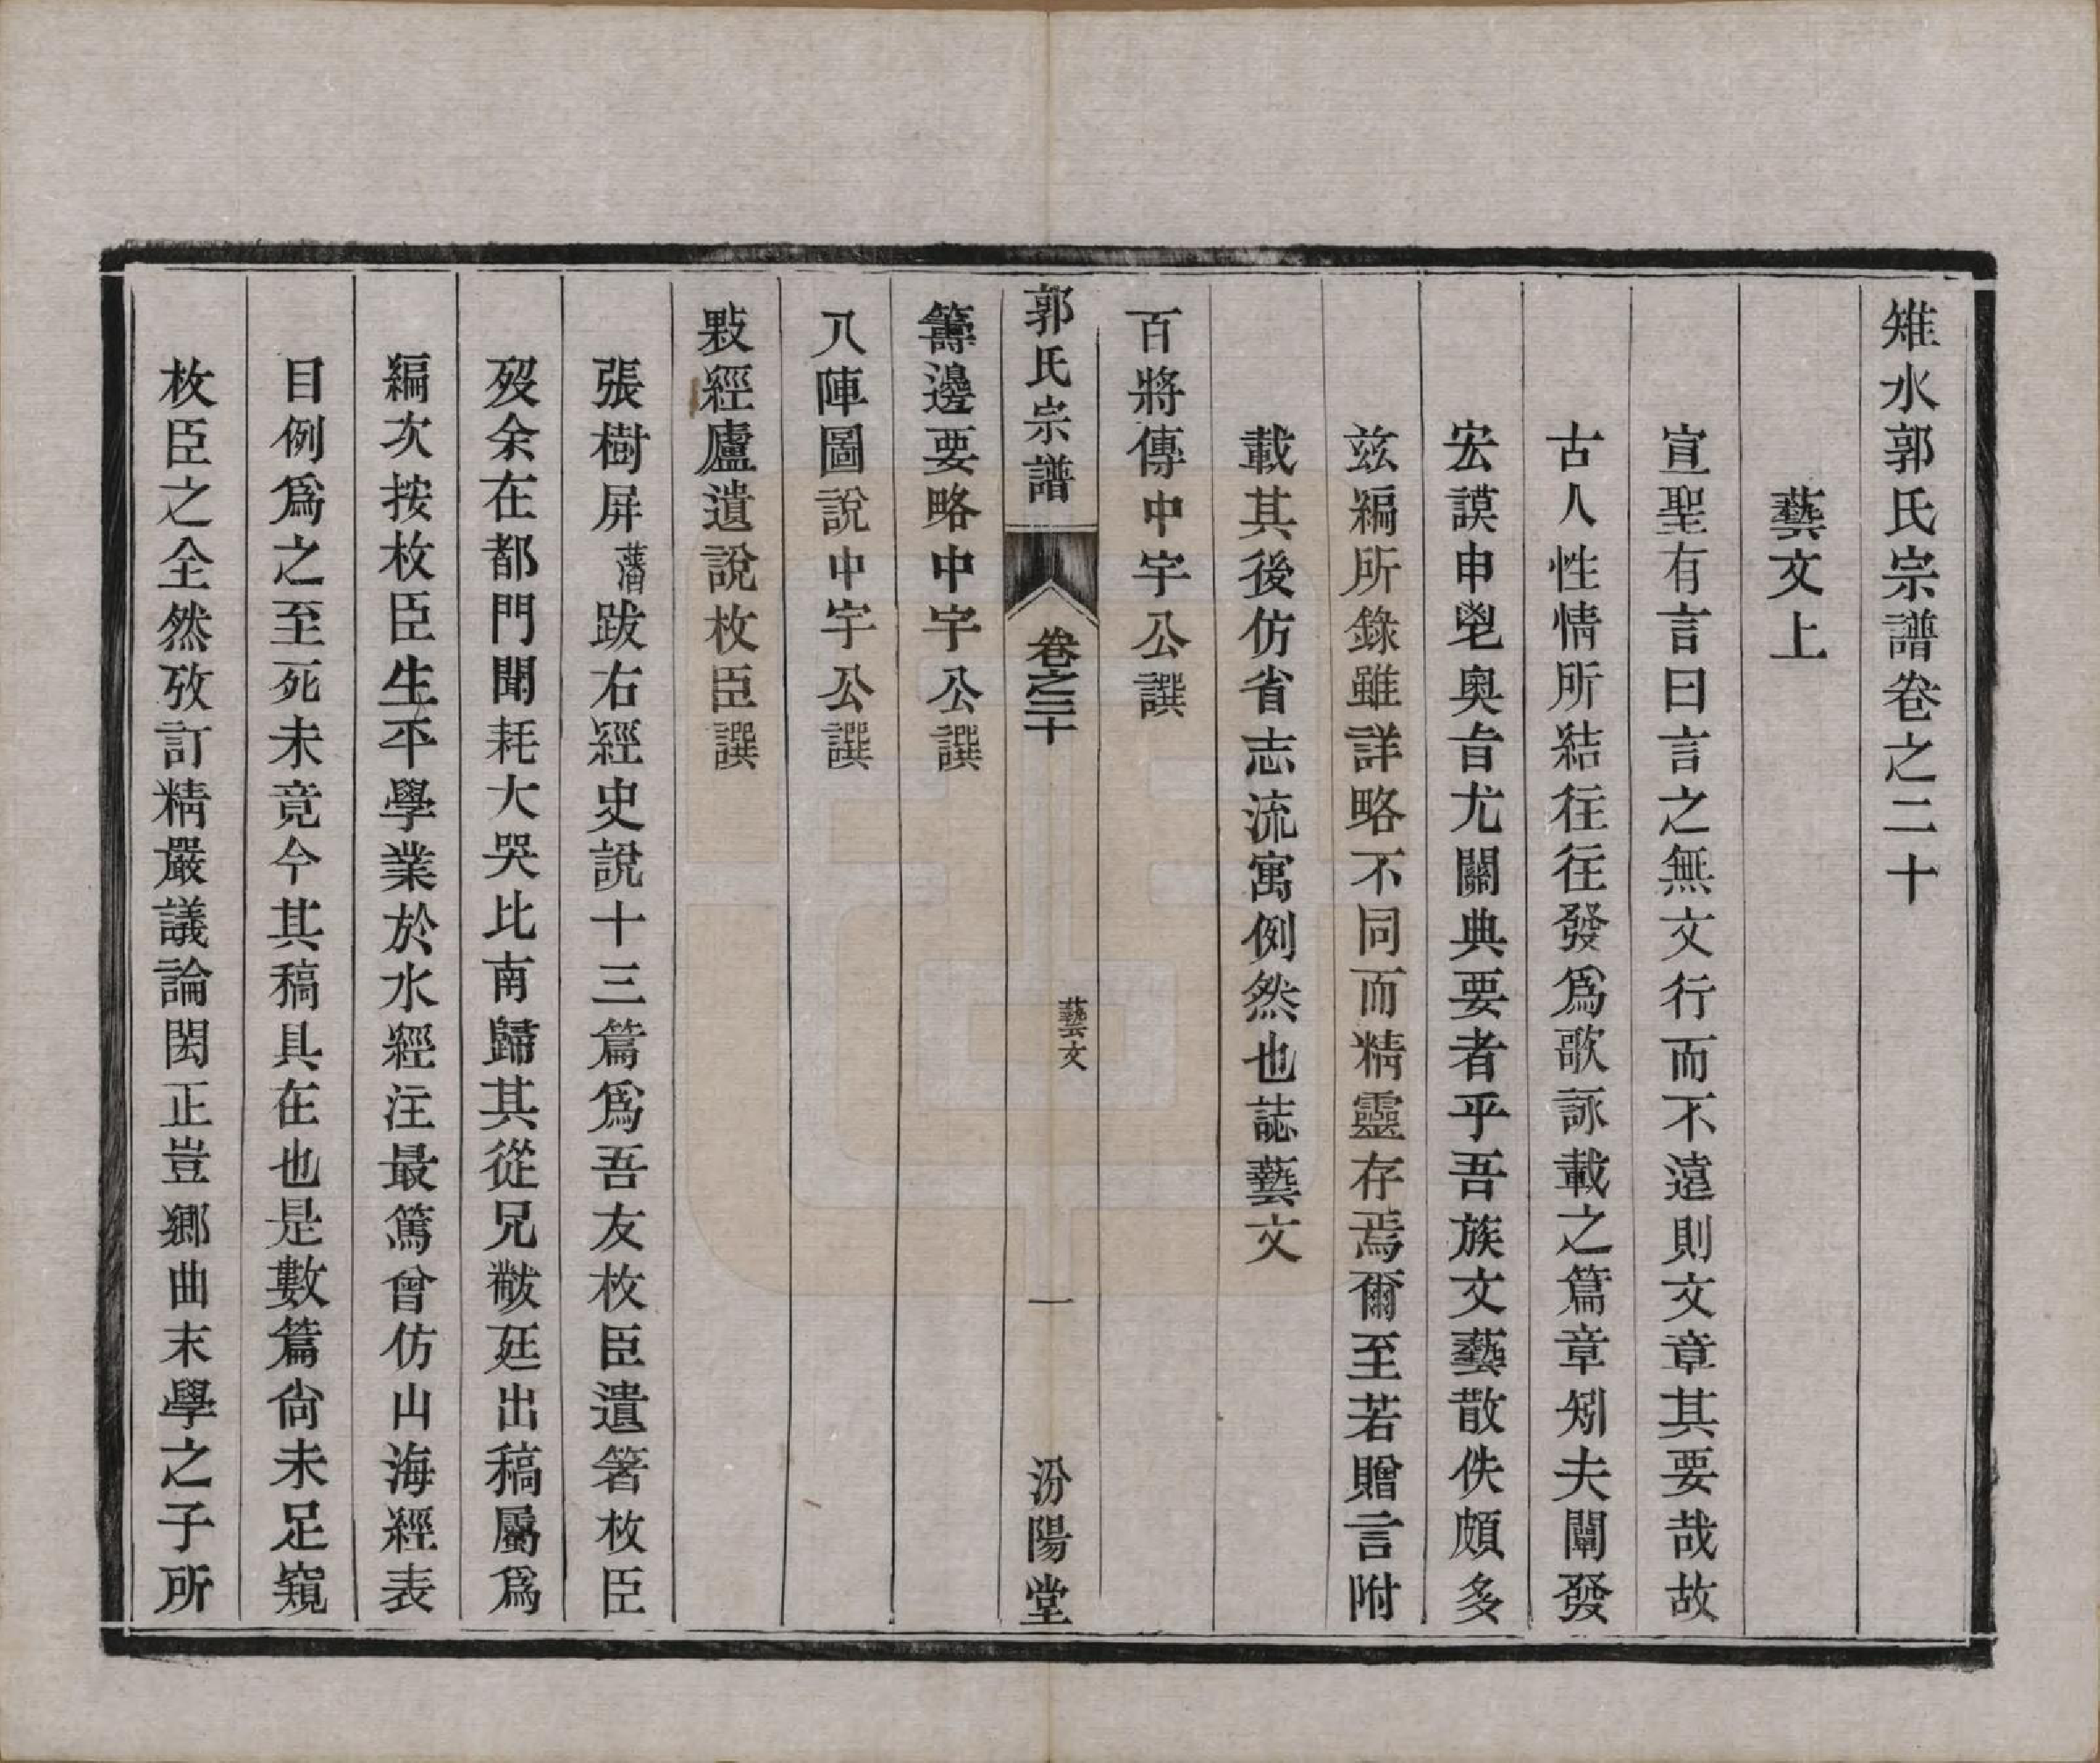 雉水郭氏宗譜卷之二十
藝文上
宣聖有言曰言之無文行而不遠則文章其要哉故
古人性情所結往往發爲歌詠載之篇章矧夫闡發
宏謨申鬯奧旨尤關典要者乎吾族文藝散佚頗多
玆編所錄雖詳略不同而精靈存焉爾至若贈言附
載其後仿省志流寓例然也誌藝文
百將傳中宇公譔
郭氏宗譜
卷之二十
藝文
一
汾陽堂
籌邊要略中宇公譔
八陣圖說中宇公譔
敤經廬遺說枚臣譔
張樹屏藩跋右經史說十三篇爲吾友枚臣遺箸枚臣
歿余在都門聞耗大哭比南歸其從兄黻廷出稿屬爲
編次按枚臣生平學業於水經注最篤曾仿山海經表
目例爲之至死未竟今其稿具在也是數篇尙未足窺
枚臣之全然攷訂精嚴議論閎正豈鄉曲末學之子所